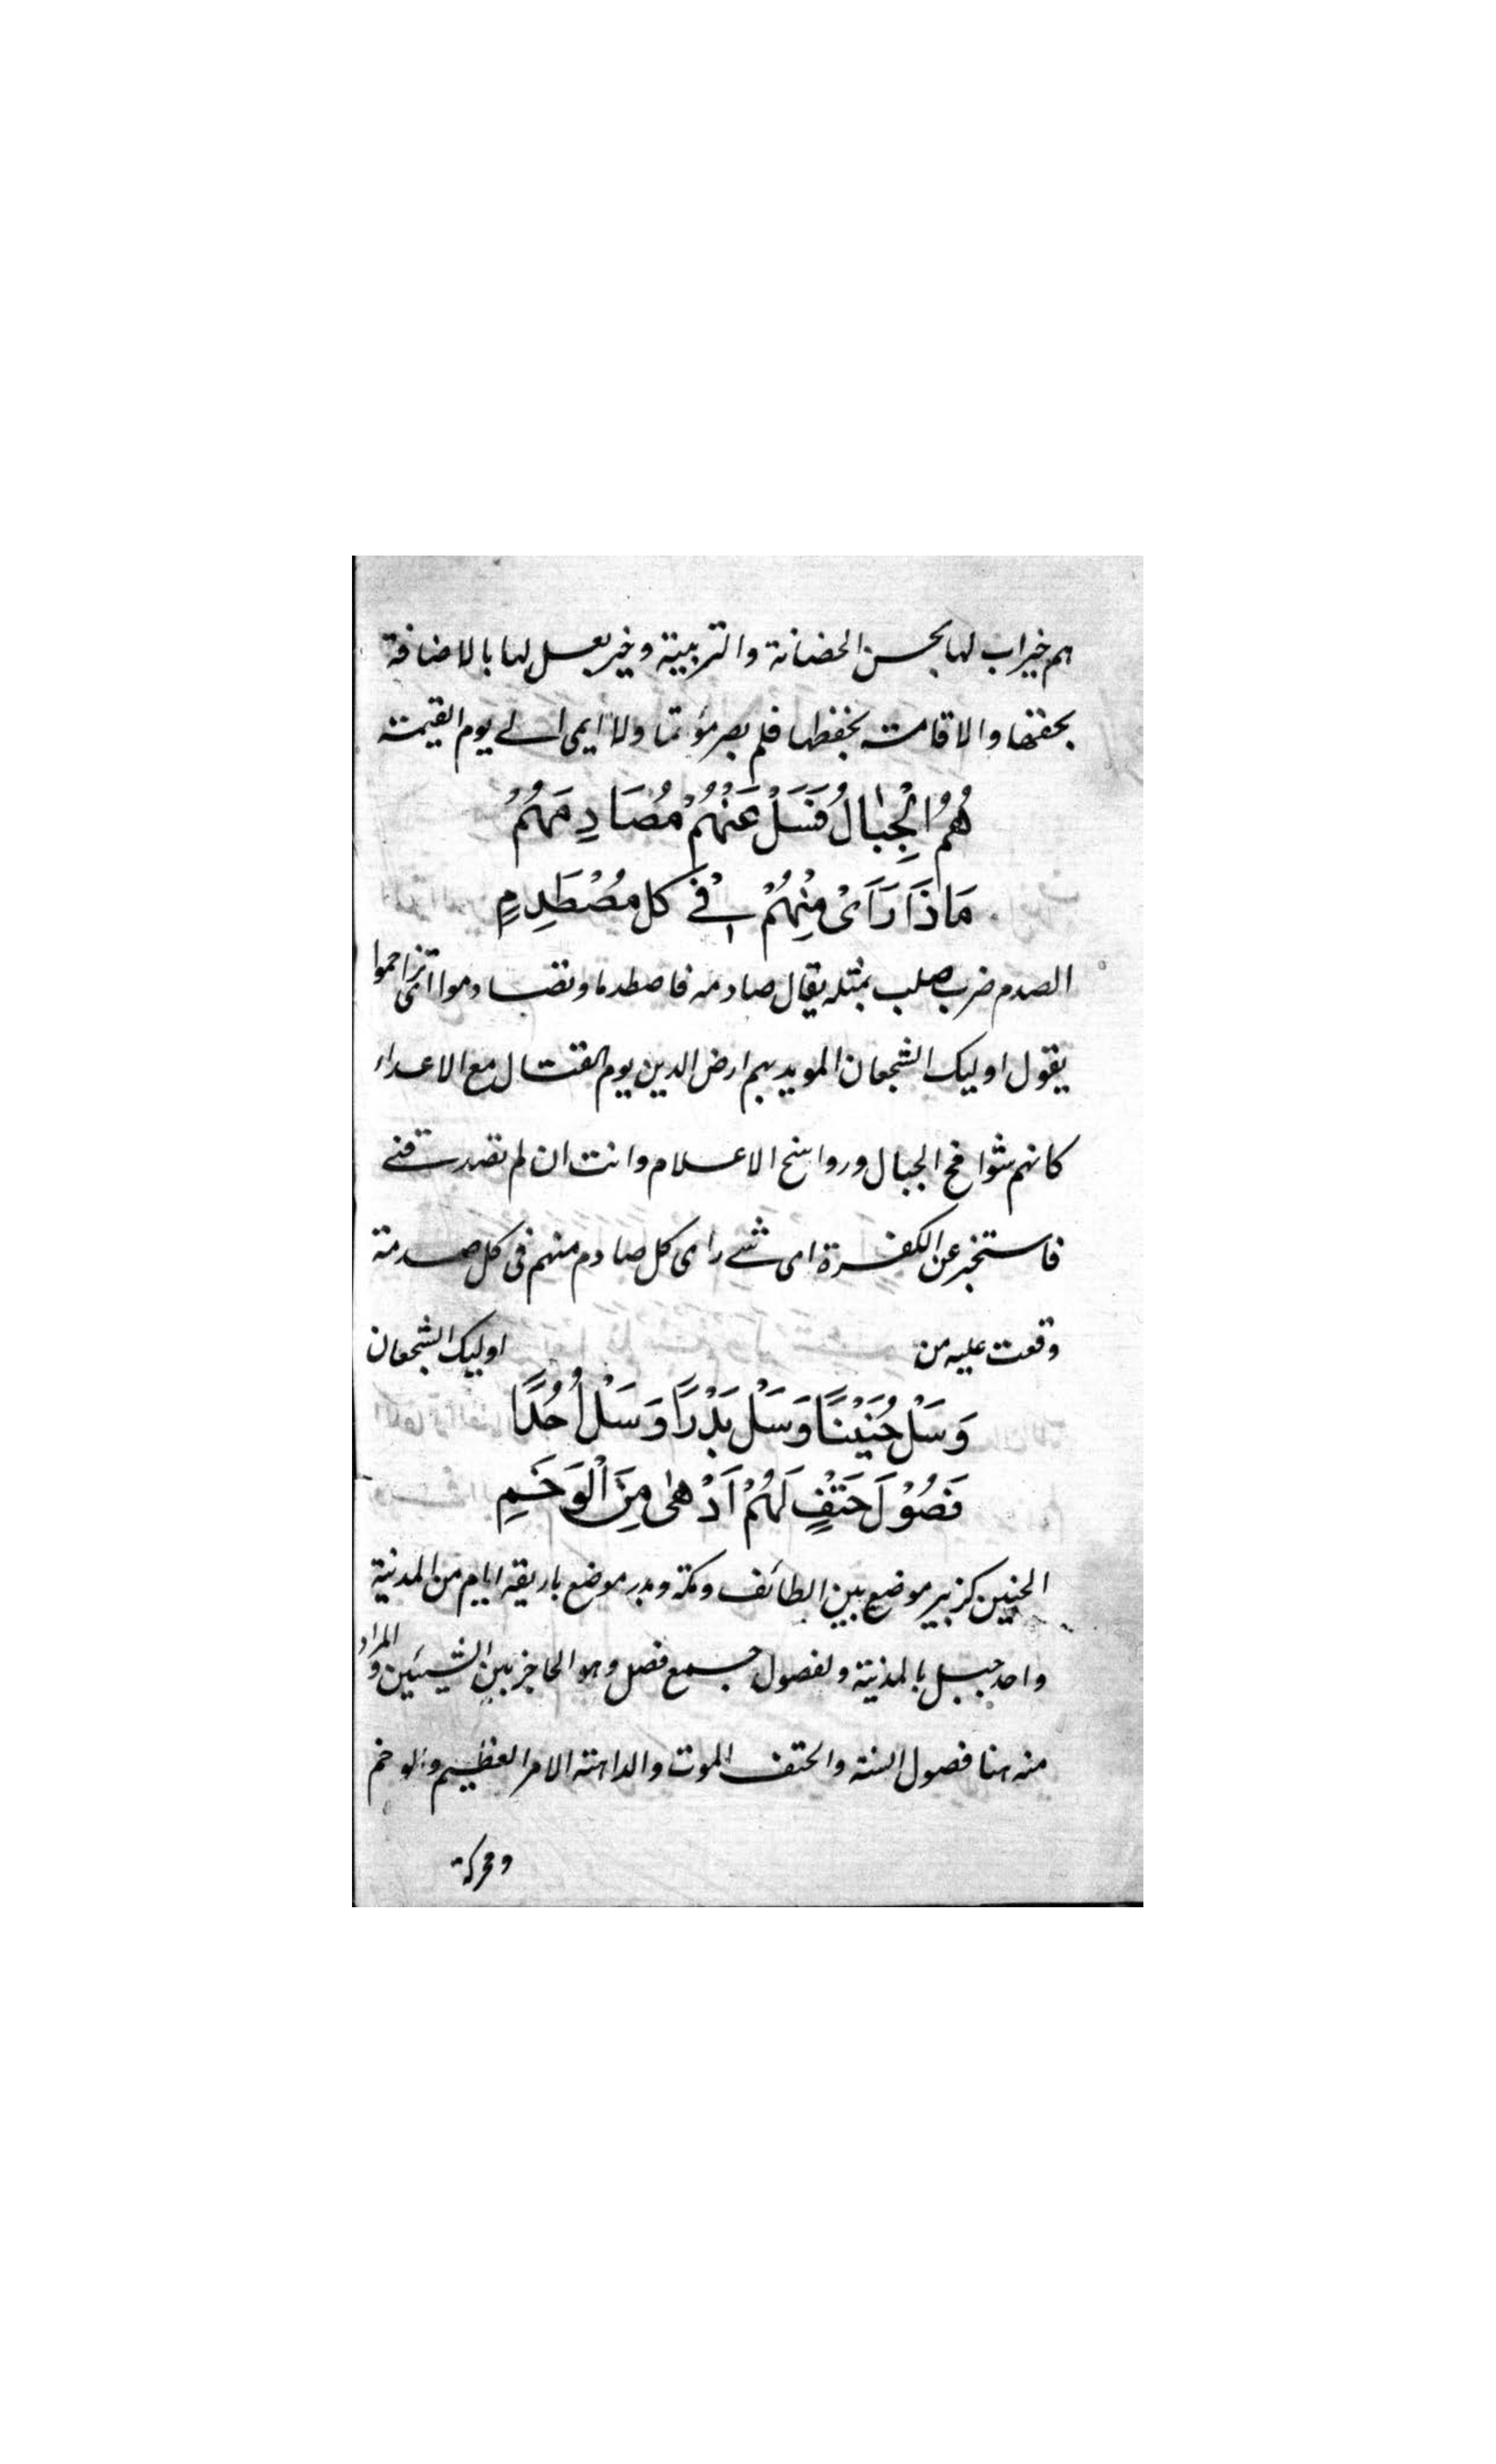 هم خير اب لها بحسن الحضانة والتربية وخير بعل لها بالاضافة
بحقها والاقامة بحفظها فلم يصر مؤتما ولا ايمى الى يوم القيمة
هُمُ الْجِبَالُ فَسَلْ عَنْهُمْ مُصَادِمَهُمْ
مَاذَا رَاَىْ مِنْهُمْ فِىْ كل مُصْطَدِمٍ
الصدم ضرب صلب بمثله يقال صادمه فاصطدما وتصادموا اى تزاحموا
يقول اوليك الشجعان المويد بهم ارض الدين يوم القتال مع الاعداء
كانهم شوامخ الجبال ورواسخ الاعلام وانت ان لم تصدقنى
فاستخبر عن الكفرة اى شے راى كل صادم منهم فى كل صدمة
وقعت عليه من اوليك الشجعان
وَسَلْ حُنَيْنًا وَسَلْ بَدْرًا وَسَلْ اُحُدًا
فَصُوْلَ حَتْفٍ لَهُمْ اَدْهٰى مِنَ الْوَخَمِ
الحنين كزبير موضع بين الطائف ومكة وبدر موضع باربعة ايام من المدنية
واحد جبل بالمدنية والفصول جمع فصل وهو الحاجز بين الشيئين والمراد
منه هنا فصول السنة والحتف الموت والداهتة الامر العظيم والوخم
ومحركة